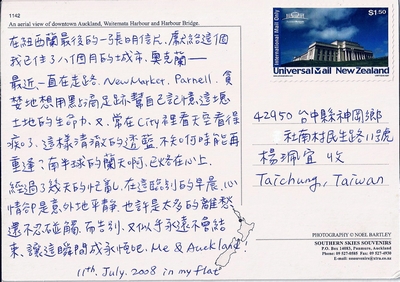 1142
An aerial view of downtown Auckland, Waitemata Harbour and Harbour Bridge.
在紐西蘭最後的一張明信片,獻給這個
我已住了八個月的城市、奧克蘭—
最近,一直在走路、NewMarket、Parnell,貪
婪地想用點滴足跡幫自己記憶這塊
土地的生命力。又,常在City裡看天空看得
痴了、這樣清澈的透藍、不知何時能再
重逢?南半球的蘭天啊,已烙在心上.
經過3幾天的忙亂,在這臨別的早晨,心
情卻是意外地平靜、也許是太多的離愁
還不忍碰觸,而告別,又似乎永遠不會結
束、讓這瞬間成永恆吧.Me & Auckland.
11th, July. 2008 in my flat
International Mail Only
$1.50
International Mail Only
Universal Mail New Zealand
42950 台中縣神岡鄉
社南村民生路113號
楊珮宜 收
Taichung, Taiwan
PHOTOGRAPHY © NOEL BARTLEY
SOUTHERN SKIES SOUVENIRS
P.O. Box 14003, Panmure, Auckland